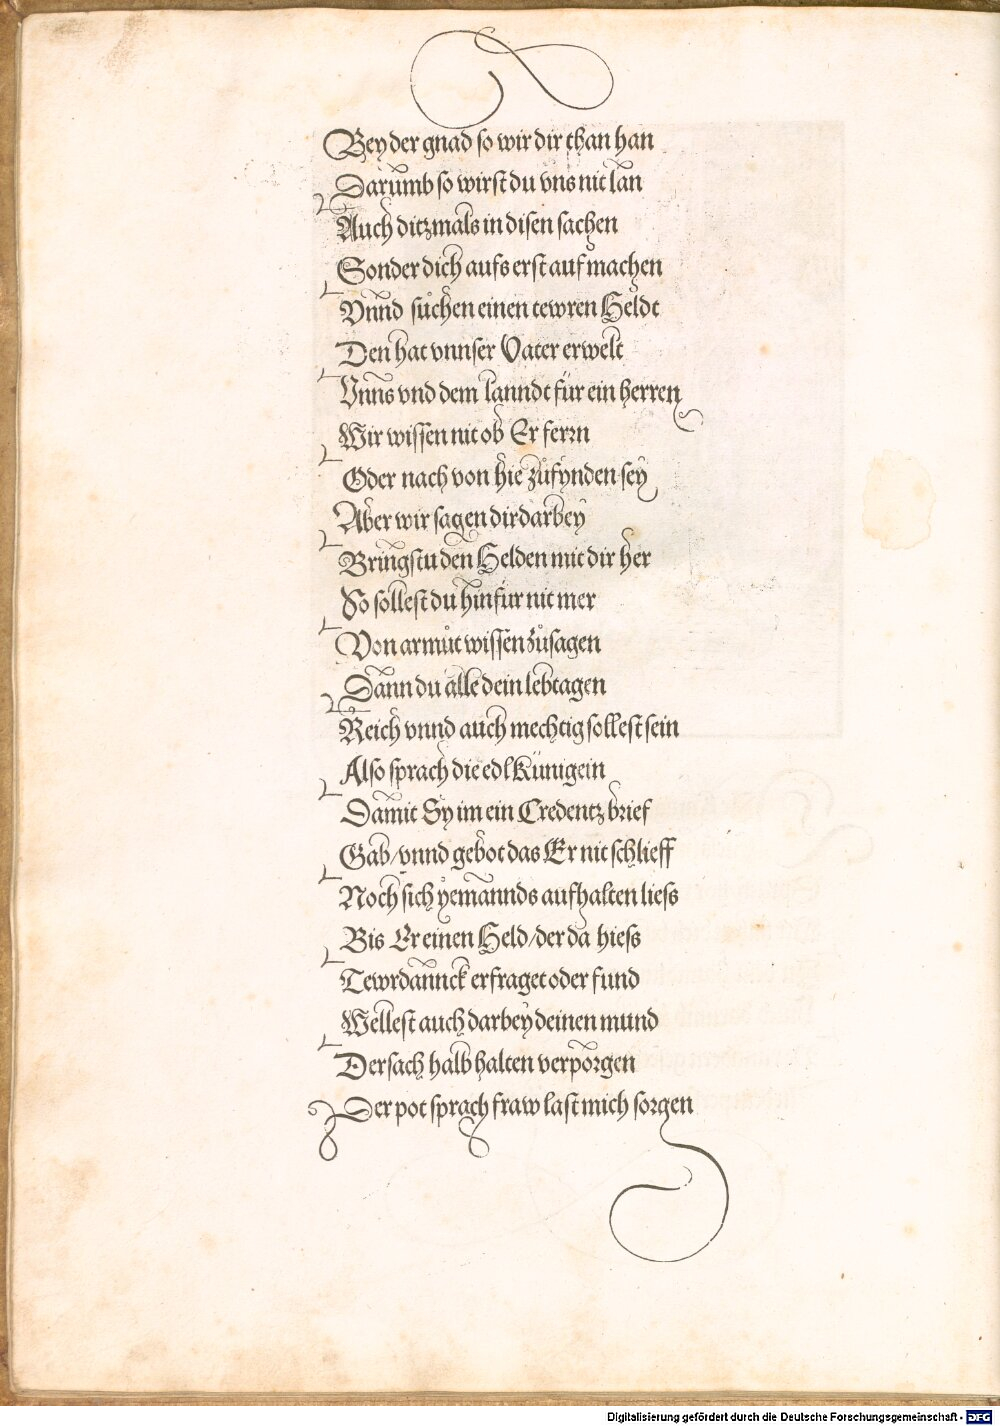 Bey der gnad so wir dir than han
Darumb so wirst du vns nit lan
Auch ditzmals in disen sachen
Sonder dich aufs erst aufmachen
Vnnd sůchen einen tewren Heldt
Den hat vnnser Vater erwelt
Vnns vnd dem lanndt für ein herren
Wir wissen nit ob Er ferrn
Oder nach von hie zůfynden sey
Aber wir sagen dir darbey
Bringstu den Helden mit dir her
So sollest du hinfür nit mer
Von armůt wissen zůsagen
Dann du alle dein lebtagen
Reich vnnd auch mechtig sollest sein
Also sprach die edl Künigein
Damit Sy im ein Credentz brief
Gab/vnnd gebot das Er nit schlieff
Noch sich yemannds aufhalten liess
Bis Er einen Held/der da hiess
Tewrdannck erfraget oder fund
Wellest auch darbey deinen mund
Der sach halb halten verporgen
Der pot sprach fraw last mich sorgen
Digitalisierung gefördert durch die Deutsche Forschungsgemeinschaft - DFG